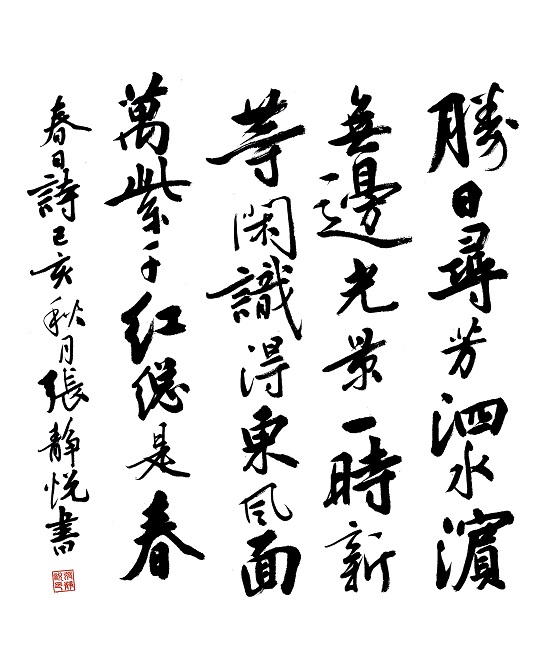 勝日尋芳泗水濵
無邊光景一時新
等閑識得東風面
萬紫千红總是春
春日詩己亥秋月張静悦書